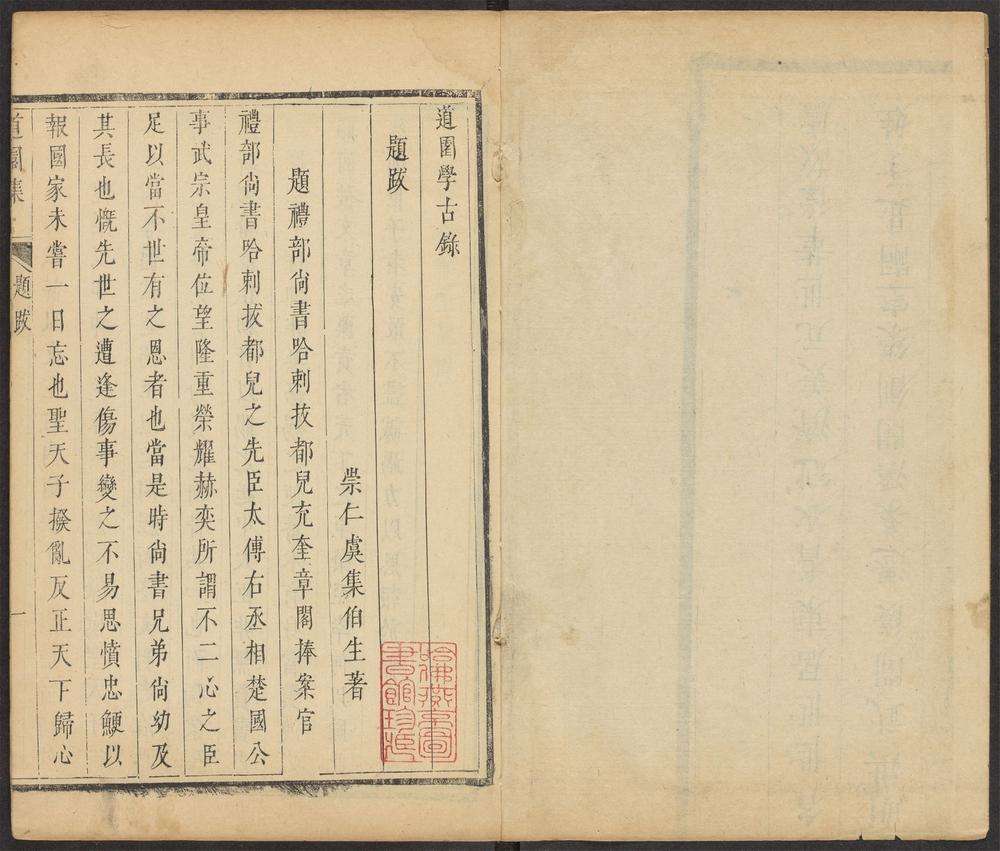 道園學古錄
題跋
崇仁虞集伯生著
題禮部尙書哈剌拔都兒充奎章閣捧案官
禮部尙書哈剌拔都兒之先臣太傅右丞相楚國公
事武宗皇帝位望隆重榮耀赫奕所謂不二心之臣
足以當不世有之恩者也當是時尙書兄弟尙幼及
其長也慨先世之遭逢傷事變之不易思憤忠鯁以
報國家未嘗一日忘也聖天子撥亂反正天下歸心
道園集
題跋
一
哈佛燕京圖
書館珍藏